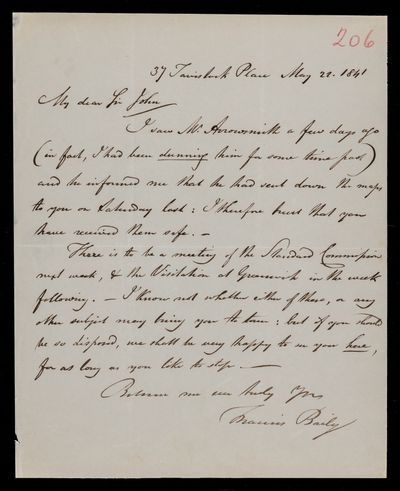 206
37 Tavistock Place May 22. 1841
My dear Sir John
I saw Mr. Arrowsmith a few days ago
(in fact, I had been dunning him for some time past)
and he informed me that he had sent down the maps
to you on Saturday last: I therefore trust that you
have received them safe. —
There is to be a meeting of the Standard Commission
next week, & the Visitation at Greenwich in the week
following. — I know not whether either of these, or any
other subject may bring you to town: but if you should
be so disposed, we shall be very happy to see you here,
for as long as you like to stop. —
Believe me ever truly Yrs
Francis Baily